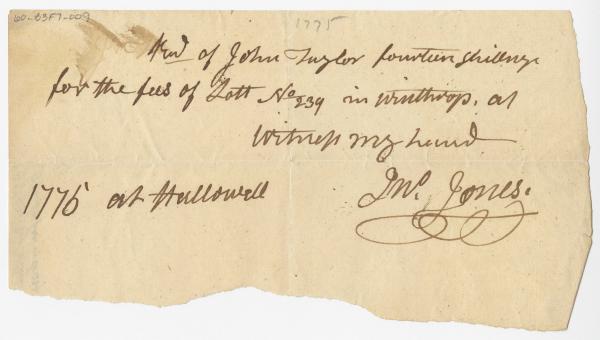 60-B3F7-009
1775
Recd of John Taylor fourteen shillings
for the fees of Lott No 239 in Winthrop. at
Witness my hand
1775 at Hallowell
Jno. Jones.